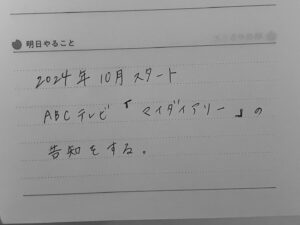 明日やること
2024年10月スタート
ABCテレビ「マイダイアリー」の
告知をする。